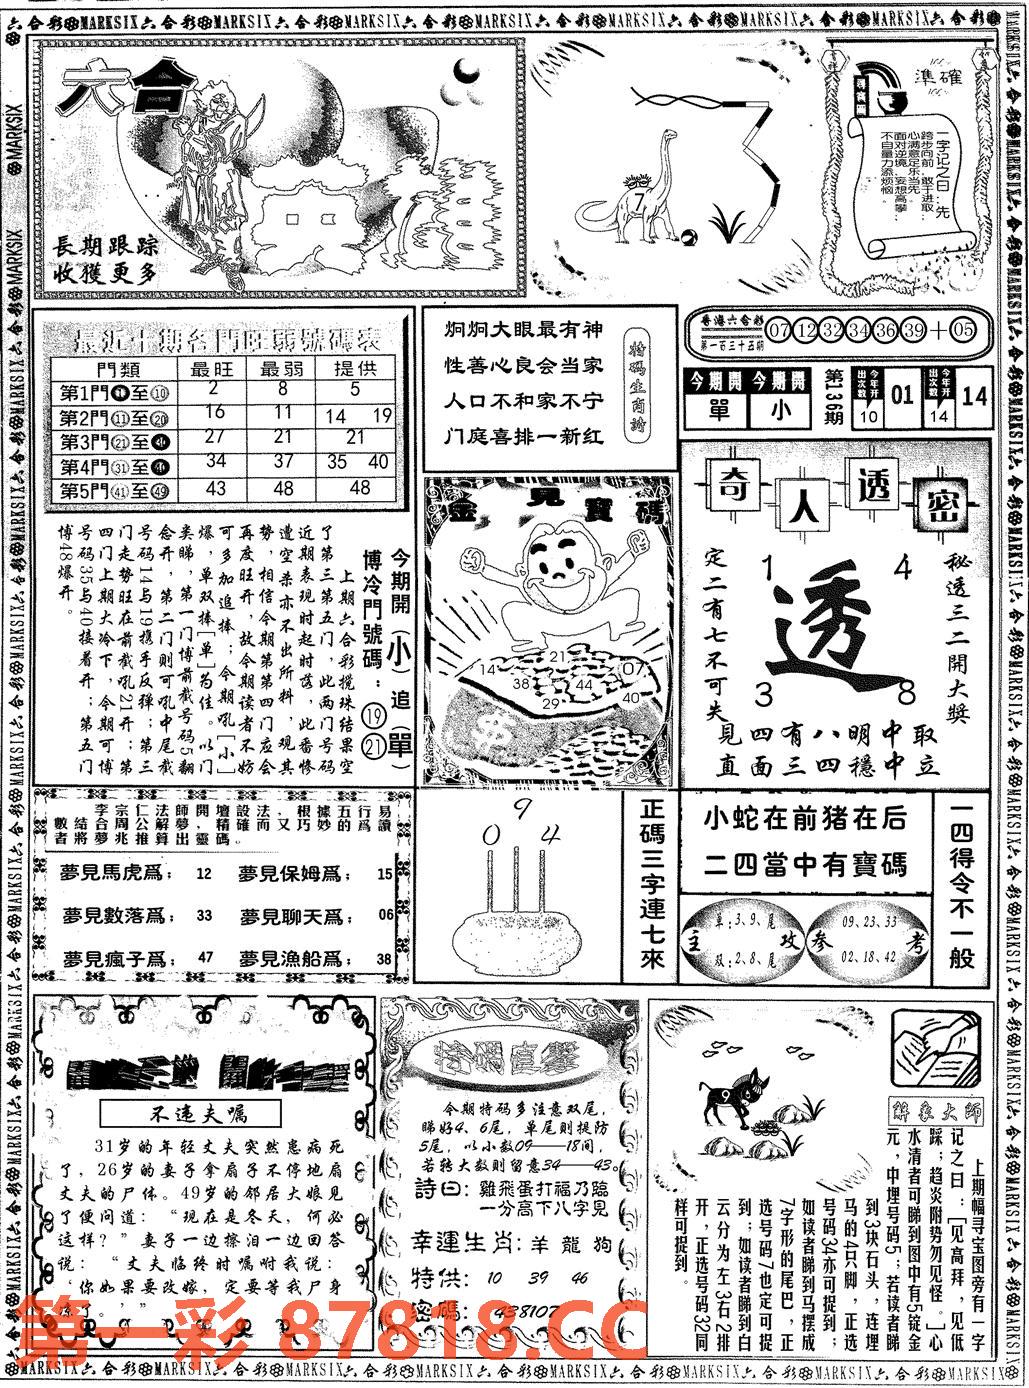 六合彩 MARKSIX
六合
長期跟踪
收獲更多
準確
一字记之曰：先
跨步向前，敢于进取；
心满意足乐当先，
面对逆境，妄想高攀；
不自量力添烦恼。
7
最近十期各門旺弱號碼表
門類 最旺 最弱 提供
第1門①至⑩ 2 8 5
第2門⑪至⑳ 16 11 14 19
第3門㉑至㉚ 27 21 21
第4門㉛至㊵ 34 37 35 40
第5門㊶至㊾ 43 48 48
今期開（小）追（單）
博冷門號碼：⑲㉑
上期六合彩搅珠结果空
了第三第五门，此两门号码
近期表现时起时落，此番惨
遭空杀亦不出所料，观其
势，相信今期第四门应会
再度旺开，故今期读者不妨
可多加追捧；今期吼[小]
爆，单双捧[单]为佳。以门
类睇，第一门博前截号码5翻
念开，第二门则可吼中尾截
号码14与19携手反弹；第三
门走势旺在前截吼21开；第
四门上期大冷下，今期可博
号码35与40接着开；第五门
博48爆开。
炯炯大眼最有神
性善心良会当家
人口不和家不宁
门庭喜排一新红
特碼生肖詩
香港六合彩
第一百三十五期
07 12 32 34 36 39 + 05
今期開 單
今期開 小
第136期
今年开出次数 10
01
今年开出次数 14
14
金見寶碼
14 38 21 29 44 07 40
奇人透密
秘透三二開大獎
定二有七不可失
1 4
透
3 8
見四有八明中取
直面三四穩中立
李宗仁法師開壇設法，根據五行易
數結合周公解夢，精確而又巧妙的爲讀
者將夢兆推算出靈碼。
夢見馬虎爲；12 夢見保姆爲；15
夢見數落爲；33 夢見聊天爲；06
夢見瘋子爲；47 夢見漁船爲；38
9
0 4
正碼三字連七來
小蛇在前猪在后
二四當中有寶碼
主攻
单：3、9、尾
双：2、8、尾
参考
09、23、33
02、18、42
一四得令不一般
不违夫嘱
31岁的年轻丈夫突然患病死
了，26岁的妻子拿扇子不停地扇
丈夫的尸体。49岁的邻居大娘见
了便问道：“现在是冬天，何必
这样？”妻子一边擦泪一边回答
说：“丈夫临终时嘱咐我说：
‘你如果要改嫁，定要等我尸身
冻了。’”
特碼直擊
今期特码多注意双尾，
睇好4、6尾，单尾则提防
5尾，以小数09——18间，
若转大数则留意34——43。
詩曰：雞飛蛋打福乃臨
一分高下八字見
幸運生肖：羊 龍 狗
特供：10 39 46
密碼：438107
9
解象大師
上期幅寻宝图旁有一字
记之曰：[见高拜，见低
踩；趋炎附势勿见怪。]心
水清者可睇到图中有5锭金
元，中埋号码5；若读者睇
到3块石头，连埋
马的4只脚，正选
号码34亦可提到；
如读者睇到马摆成
7字形的尾巴，正
选号码7也定可捉
到；如读者睇到白
云分为左3右2排
开，正选号码32同
样可捉到。
第一彩 87818.CC